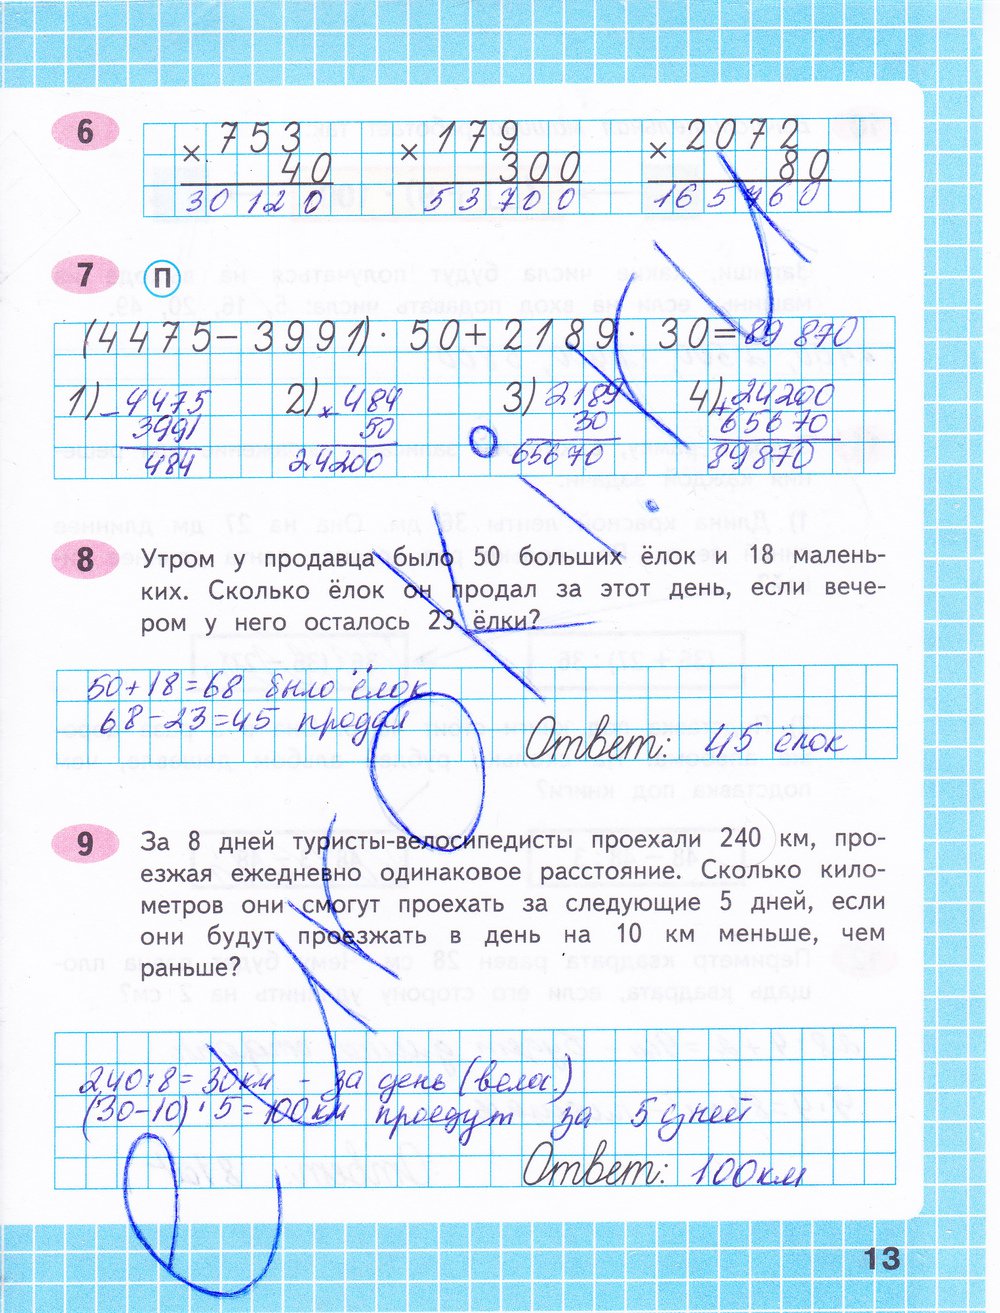 6
× 753 × 179 × 2072
40 300 80
30120 53700 165760
7 П
(4475 − 3991) · 50 + 2189 · 30 = 89 870
1) − 4475 2) × 484 3) 2189 4) + 24200
3991 50 30 65670
484 24200 65670 89870
8 Утром у продавца было 50 больших ёлок и 18 малень-
ких. Сколько ёлок он продал за этот день, если вече-
ром у него осталось 23 ёлки?
50+18=68 было ёлок
68−23=45 продал
Ответ: 45 ёлок
9 За 8 дней туристы-велосипедисты проехали 240 км, про-
езжая ежедневно одинаковое расстояние. Сколько кило-
метров они смогут проехать за следующие 5 дней, если
они будут проезжать в день на 10 км меньше, чем
раньше?
240:8=30км - за день (велос.)
(30−10)·5=100км проедут за 5 дней
Ответ: 100км
13